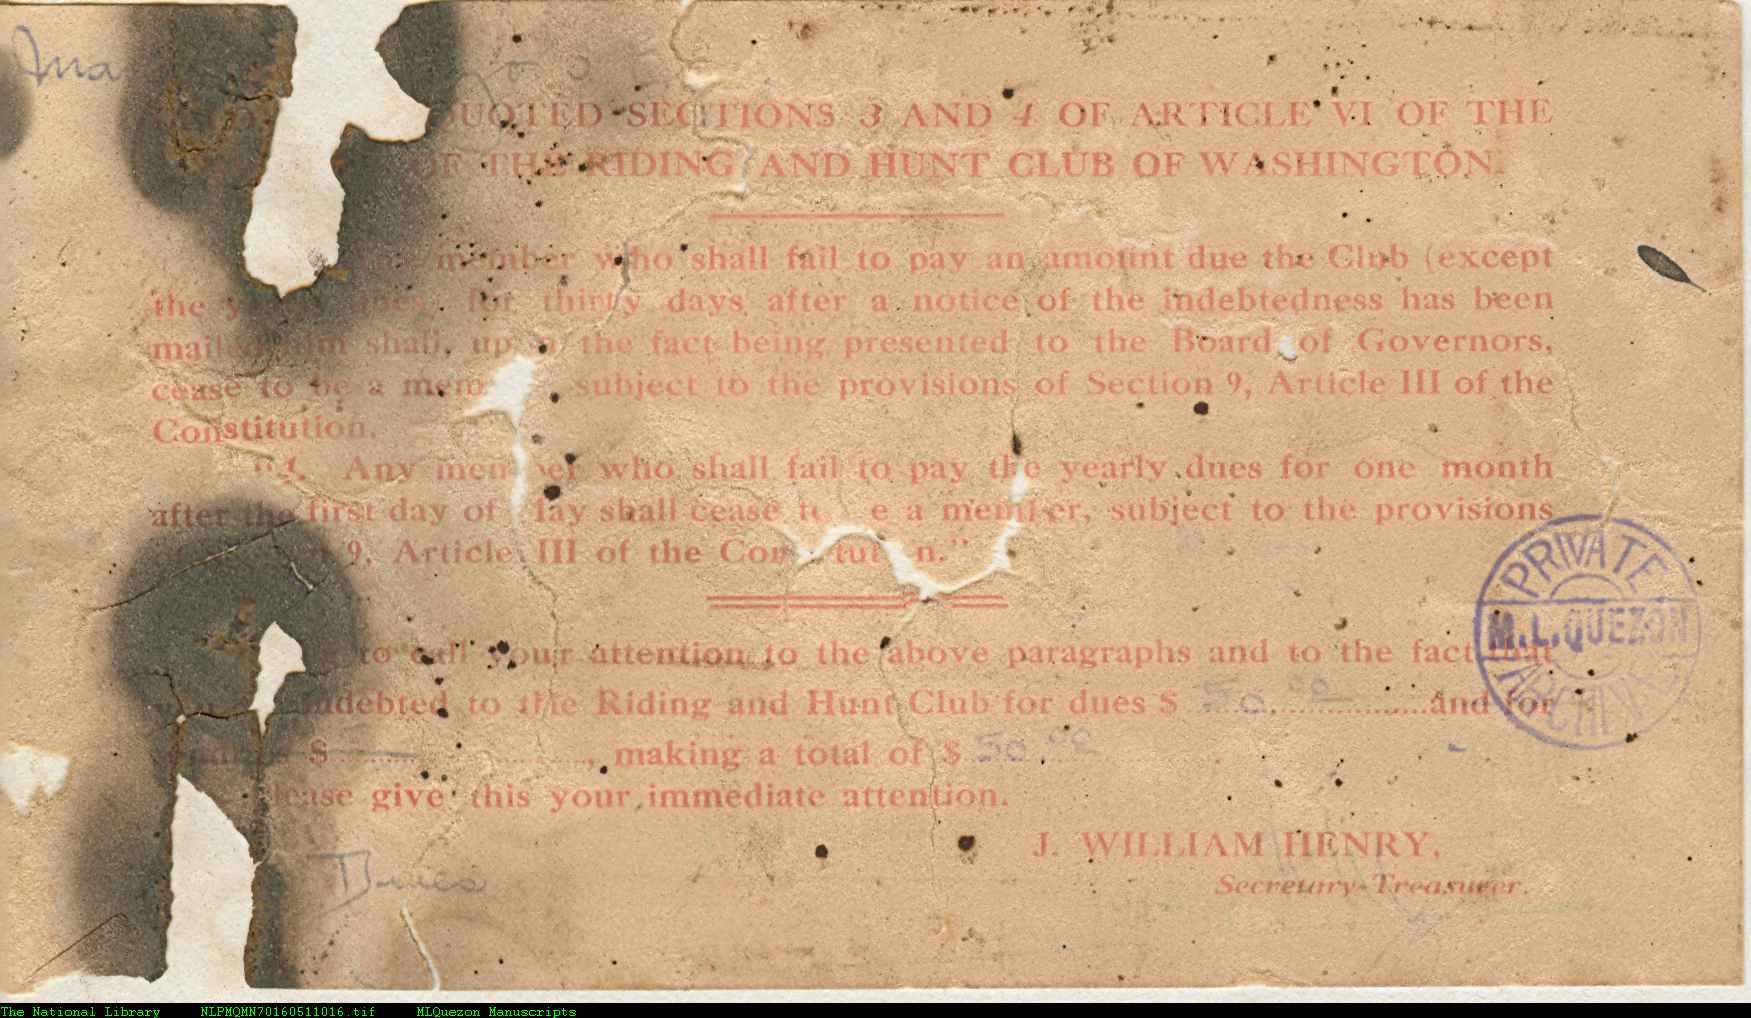 QUOTED SECTIONS 3 AND 4 OF ARTICLE VI OF THE
OF THE RIDING AND HUNT CLUB OF WASHINGTON.
member who shall fail to pay an amount due the Club (except
the dues, for thirty days after a notice of the indebtedness has been
him shall, upon the fact being presented to the Board of Governors,
cease to be a subject to the provisions of Section 9, Article III of the
Constitution.
"4. Any member who shall fail to pay the yearly dues for one month
after the first day of May shall cease to be a member, subject to the provisions
9, Article III of the Constitution."
to call your attention to the above paragraphs and to the fact that
indebted to the Riding and Hunt Club for dues $ 50.00 and for
$ , making a total of $ 50.00 .
Please give this your immediate attention.
J. WILLIAM HENRY,
Secretary-Treasurer.
PRIVATE
M.L.QUEZON
ARCHIVE
The National Library NLPMQMN70160511016.tif MLQuezon Manuscripts